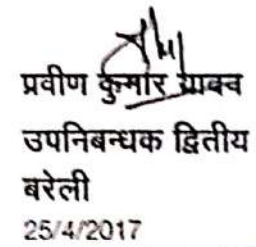 प्रवीण कुमार यादव
उपनिबन्धक द्वितीय
बरेली
25/4/2017